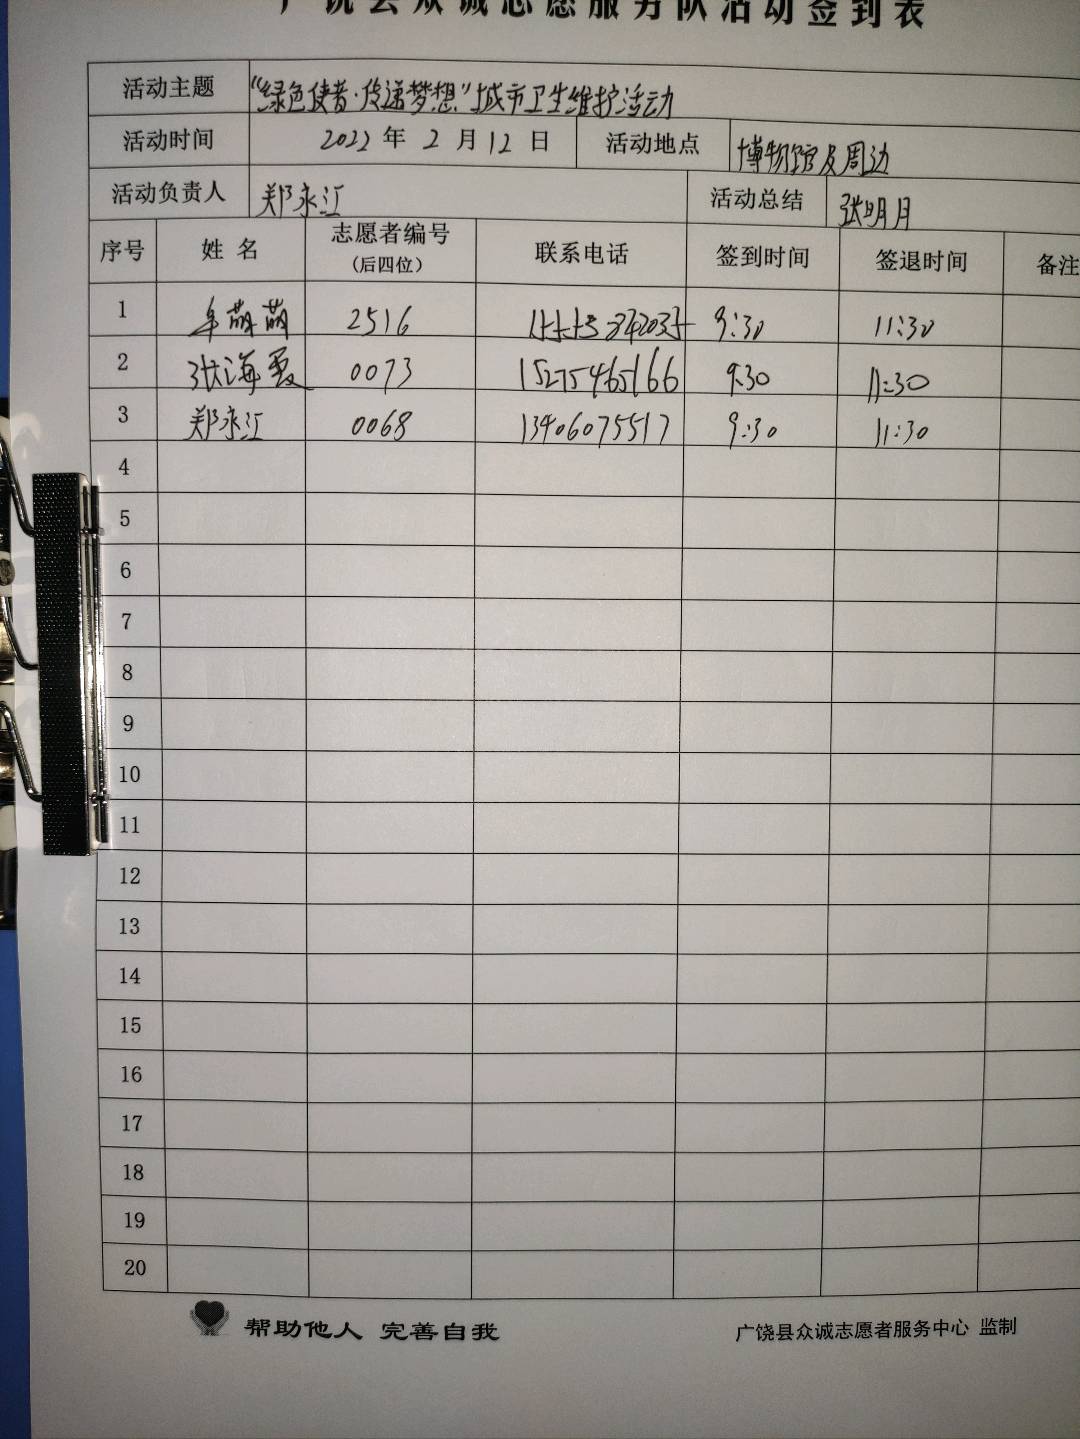 广饶县众诚志愿服务队活动签到表
活动主题 “绿色使者·传递梦想”城市卫生维护活动
活动时间 2022年2月12日 活动地点 博物馆及周边
活动负责人 郑永江 活动总结 张明月
序号 姓名 志愿者编号（后四位） 联系电话 签到时间 签退时间 备注
1 牟萌萌 2516 9:30 11:30
2 张海霞 0073 15275465166 9:30 11:30
3 郑永江 0068 13406075517 9:30 11:30
4
5
6
7
8
9
10
11
12
13
14
15
16
17
18
19
20
帮助他人 完善自我 广饶县众诚志愿者服务中心 监制